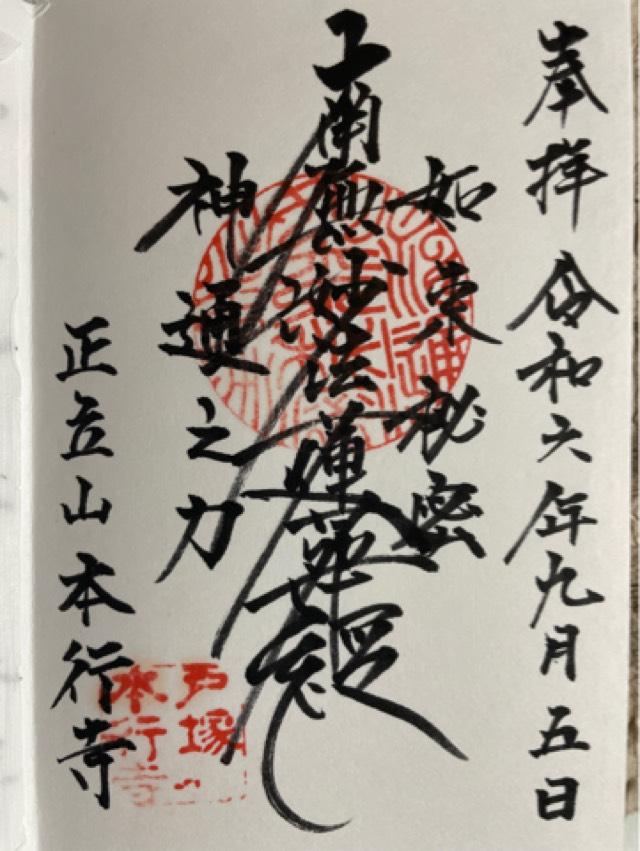 奉拝 令和六年九月五日
如来秘密
南無妙法蓮華経
神通之力
正立山 本行寺
戸塚
本行寺